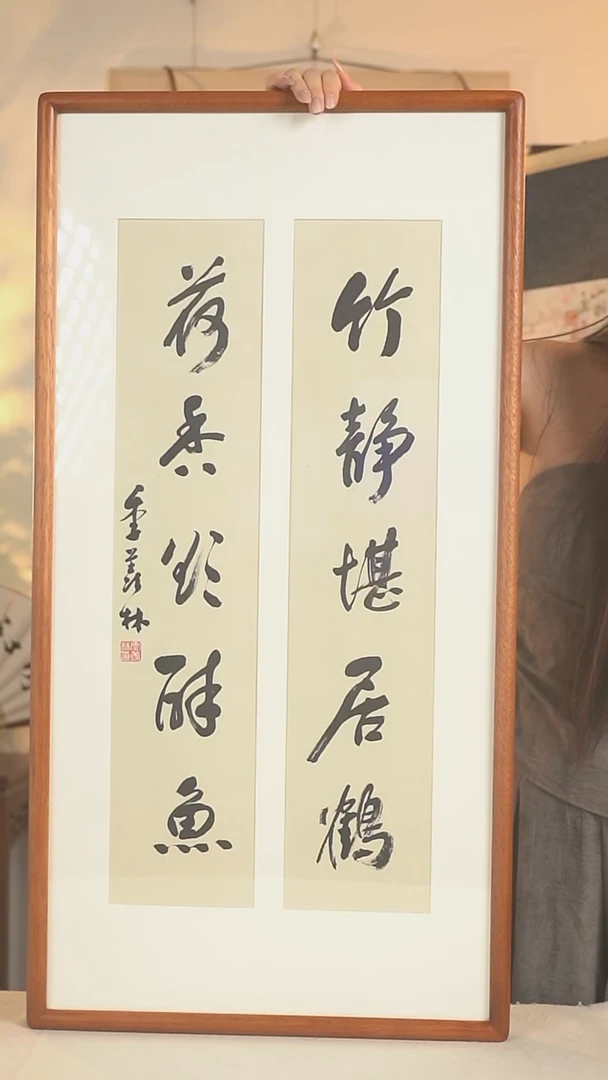 竹静堪居鶴
荷香欲醉魚
季羡林